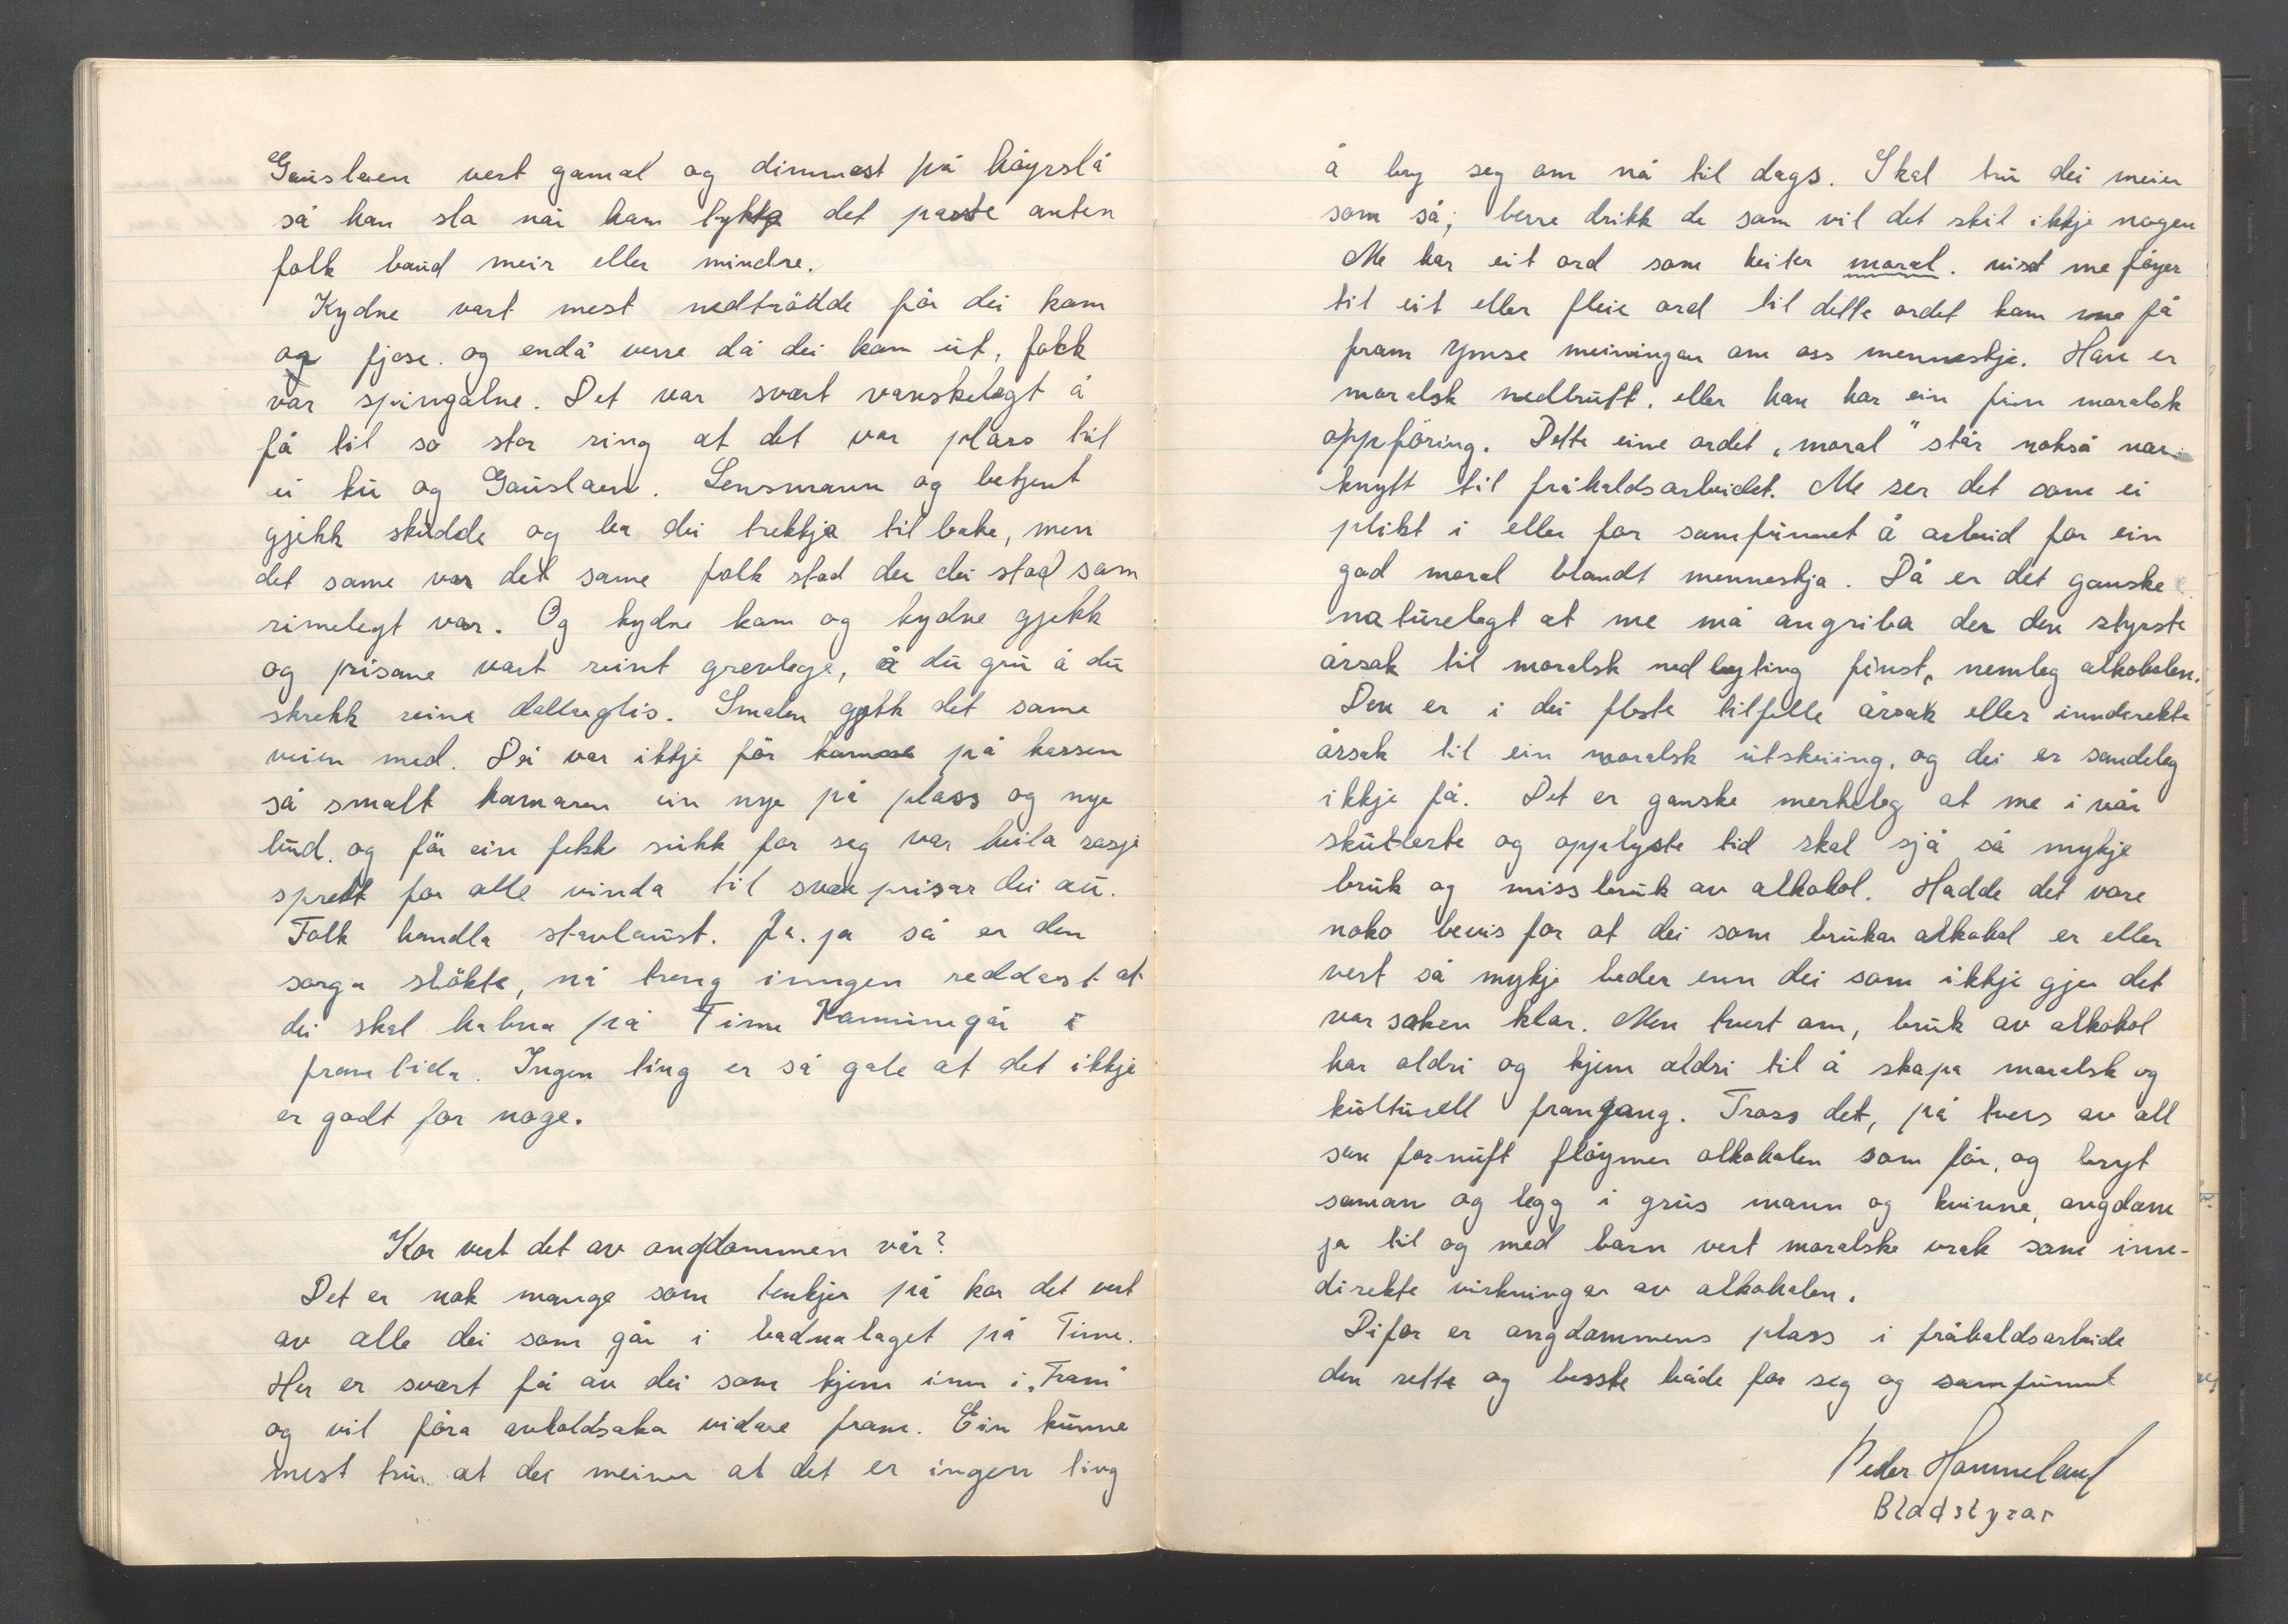 Gauslaen vert gamal og dimmest på høyrslå
så han sla når ham tykkje det passte anten
folk baud meir eller mindre.
Kydne vart mest nedtrødde før dei kom
og fjose. og endå verre då dei kom ut, folk
var spingalne. Det var svært vanskelegt å
få til so stor ring at det var plass til
ei ku og Gauslaen. Lensmann og betjent
gjekk skudde og ba dei trekkja tilbake, men
det same var det same folk stod der dei stod som
rimelegt var. Og kydne kom og kydne gjekk
og prisane vart reint grevlege, å du gru å du
skrekk reine dallaglis. Smalen gjekk det same
veien med. Dei var ikkje før komne på kassen
så smalt hamaren ein nye på plass og nye
bud. og før ein fekk sukk for seg var heila sasje
sprett for alle vinda til svære prisar dei au.
Folk handla stavlaust. Ja. ja så er den
sorga sløkte, nå treng inngen reddast at
dei skal habna på Time Kommunegår i
framtida. Ingen ting er så gale at det ikkje
er godt for noge.
Kor vert det av ongdommen vår?
Det er nok mange som tenkjer på kor det vert
av alle dei som går i badnalaget på Time.
Her er svært få av dei som kjem inn i „Fram"
og vil føra avholdsaka vidare fram. Ein kunne
mest tru at dei meiner at det er ingen ting
å bry seg om nå til dags. Skal tru dei meier
som så; berre drikk de som vil det skil ikkje nogen
Me har eit ord som heiter moral. visst me føyer
til eit eller fleie ord til dette ordet kam me få
fram ymse meiningar om oss menneskje. Han er
moralsk nedbrutt. eller han har ein fiin moralsk
oppføring. Dette eine ordet „moral" står nokså nar
knytt til fråhaldsarbeidet. Me ser det som ei
plikt i eller for samfunnet å arbeid for ein
god moral blandt menneskja. Då er det ganske
naturelegt at me må angriba der den styrste
årsak til moralsk nedbryting finst, nemleg alkoholen.
Den er i dei fleste tilfelle årsak eller inndirekte
årsak til ein moralsk utskeiing. og dei er sandeleg
ikkje få. Det er ganske merkeleg at me i vår
skulerte og opplyste tid skal sjå så mykje
bruk og missbruk av alkohol. Hadde det vore
noko bevis for at dei som brukar alkohol er eller
vert så mykje beder enn dei som ikkje gjer det
var saken klar. Men tvert om, bruk av alkohol
har aldri og kjem aldri til å skapa moralsk og
kulturell framgang. Trass det, på tvers av all
sun fornuft fløymer alkoholen som før, og bryt
saman og legg i grus mann og kvinne, ongdom
ja til og med barn vert moralske vrak som inn-
direkte virkningar av alkoholen.
Difor er ongdommens plass i fråhaldsarbeide
den rette og besste både for seg og samfunnet
Peder Hommeland
Bladstyrar